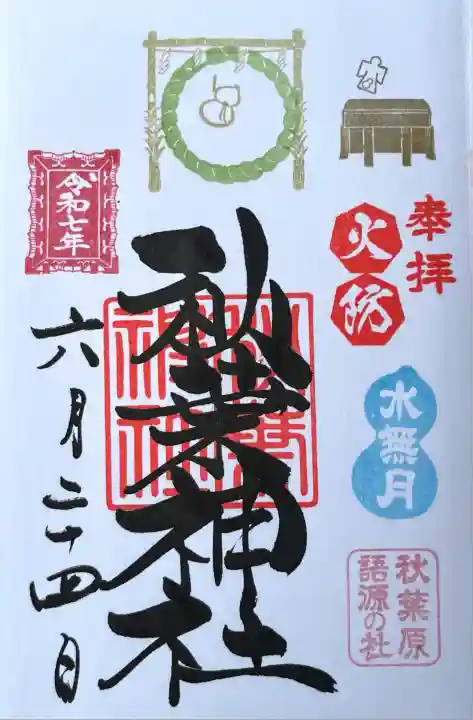 奉拝
火防
水無月
秋葉原
語源の社
秋葉神社
令和七年
六月二十四日